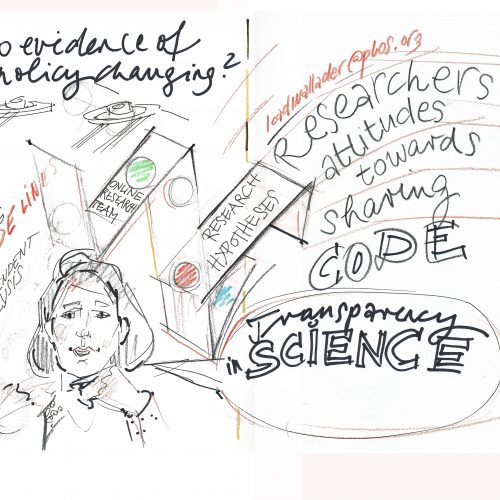 o evidence of
policy changing?
ONLINE
RESEARCH
TEAM
RESEARCH
HYPOTHESES
leadwallader@plos.org
Researchers
attitudes
towards
sharing
CODE
Transparency
in SCIENCE